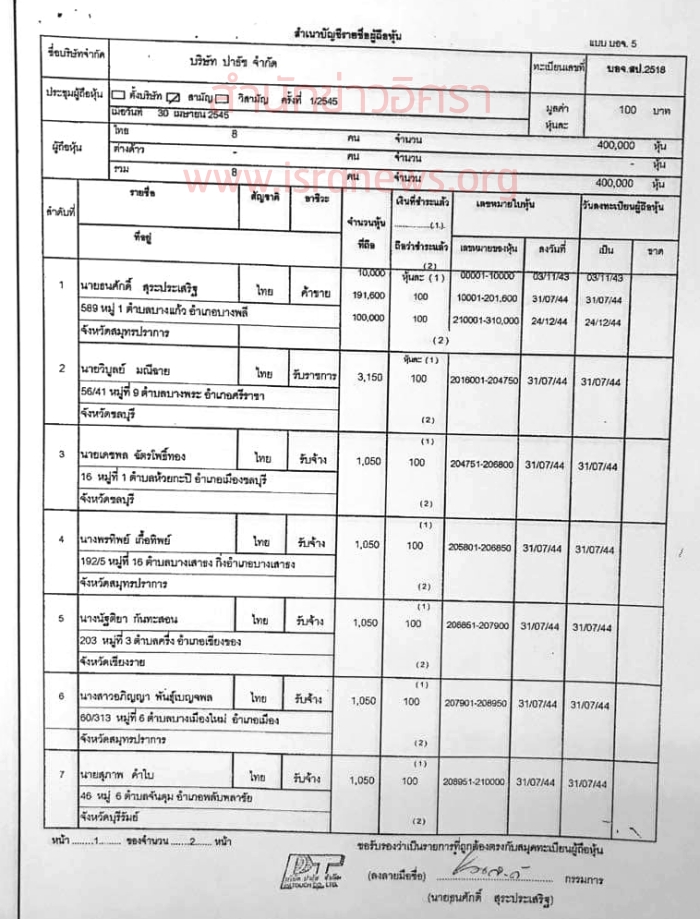 สำเนาบัญชีรายชื่อผู้ถือหุ้น
แบบ บอจ. 5
ชื่อบริษัทจำกัด บริษัท ปาธัช จำกัด ทะเบียนเลขที่ บอจ.สป.2518
ประชุมผู้ถือหุ้น ตั้งบริษัท สามัญ วิสามัญ ครั้งที่ 1/2545 มูลค่าหุ้นละ 100 บาท
เมื่อวันที่ 30 เมษายน 2545
สำนักข่าวอิศรา
ผู้ถือหุ้น ไทย 8 คน จำนวน 400,000 หุ้น
ต่างด้าว - คน จำนวน - หุ้น
รวม 8 คน จำนวน 400,000 หุ้น
www.isranews.org
ลำดับที่ รายชื่อ สัญชาติ อาชีวะ จำนวนหุ้นที่ถือ เงินที่ชำระแล้ว (1) เลขหมายใบหุ้น วันลงทะเบียนผู้ถือหุ้น
ที่อยู่ ถือว่าชำระแล้ว (2) เลขหมายของหุ้น ลงวันที่ เป็น ขาด
1 นายธนศักดิ์ สุระประเสริฐ ไทย ค้าขาย 10,000 หุ้นละ (1) 00001-10000 03/11/43 03/11/43
191,600 100 10001-201,600 31/07/44 31/07/44
589 หมู่ 1 ตำบลบางแก้ว อำเภอบางพลี 100,000 100 210001-310,000 24/12/44 24/12/44
จังหวัดสมุทรปราการ (2)
2 นายวิบูลย์ มณีฉาย ไทย รับราชการ 3,150 หุ้นละ (1) 100 2016001-204750 31/07/44 31/07/44
56/41 หมู่ที่ 9 ตำบลบางพระ อำเภอศรีราชา
จังหวัดชลบุรี (2)
3 นายเดชพล ฉัตรโพธิ์ทอง ไทย รับจ้าง 1,050 (1) 100 204751-206800 31/07/44 31/07/44
16 หมู่ที่ 1 ตำบลห้วยกะปิ อำเภอเมืองชลบุรี
จังหวัดชลบุรี (2)
4 นางพรทิพย์ เกื้อทิพย์ ไทย รับจ้าง 1,050 (1) 100 205801-206850 31/07/44 31/07/44
192/5 หมู่ที่ 16 ตำบลบางเสาธง กิ่งอำเภอบางเสาธง
จังหวัดสมุทรปราการ (2)
5 นางนัฐติยา กันทะสอน ไทย รับจ้าง 1,050 (1) 100 206851-207900 31/07/44 31/07/44
203 หมู่ที่ 3 ตำบลครึ่ง อำเภอเชียงของ
จังหวัดเชียงราย (2)
6 นางสาวอภิญญา พันธุ์เบญจพล ไทย รับจ้าง 1,050 (1) 100 207901-208950 31/07/44 31/07/44
60/313 หมู่ที่ 6 ตำบลบางเมืองใหม่ อำเภอเมือง
จังหวัดสมุทรปราการ (2)
7 นายสุภาพ คำใบ ไทย รับจ้าง 1,050 (1) 100 208951-210000 31/07/44 31/07/44
46 หมู่ 6 ตำบลจันดุม อำเภอพลับพลาชัย
จังหวัดบุรีรัมย์ (2)
หน้า ........1........ ของจำนวน ......2...... หน้า
ขอรับรองว่าเป็นรายการที่ถูกต้องตรงกับสมุดทะเบียนผู้ถือหุ้น
(ลงลายมือชื่อ) กรรมการ
(นายธนศักดิ์ สุระประเสริฐ)